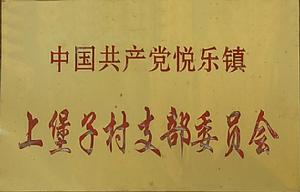 中国共产党悦乐镇
上堡子村支部委员会